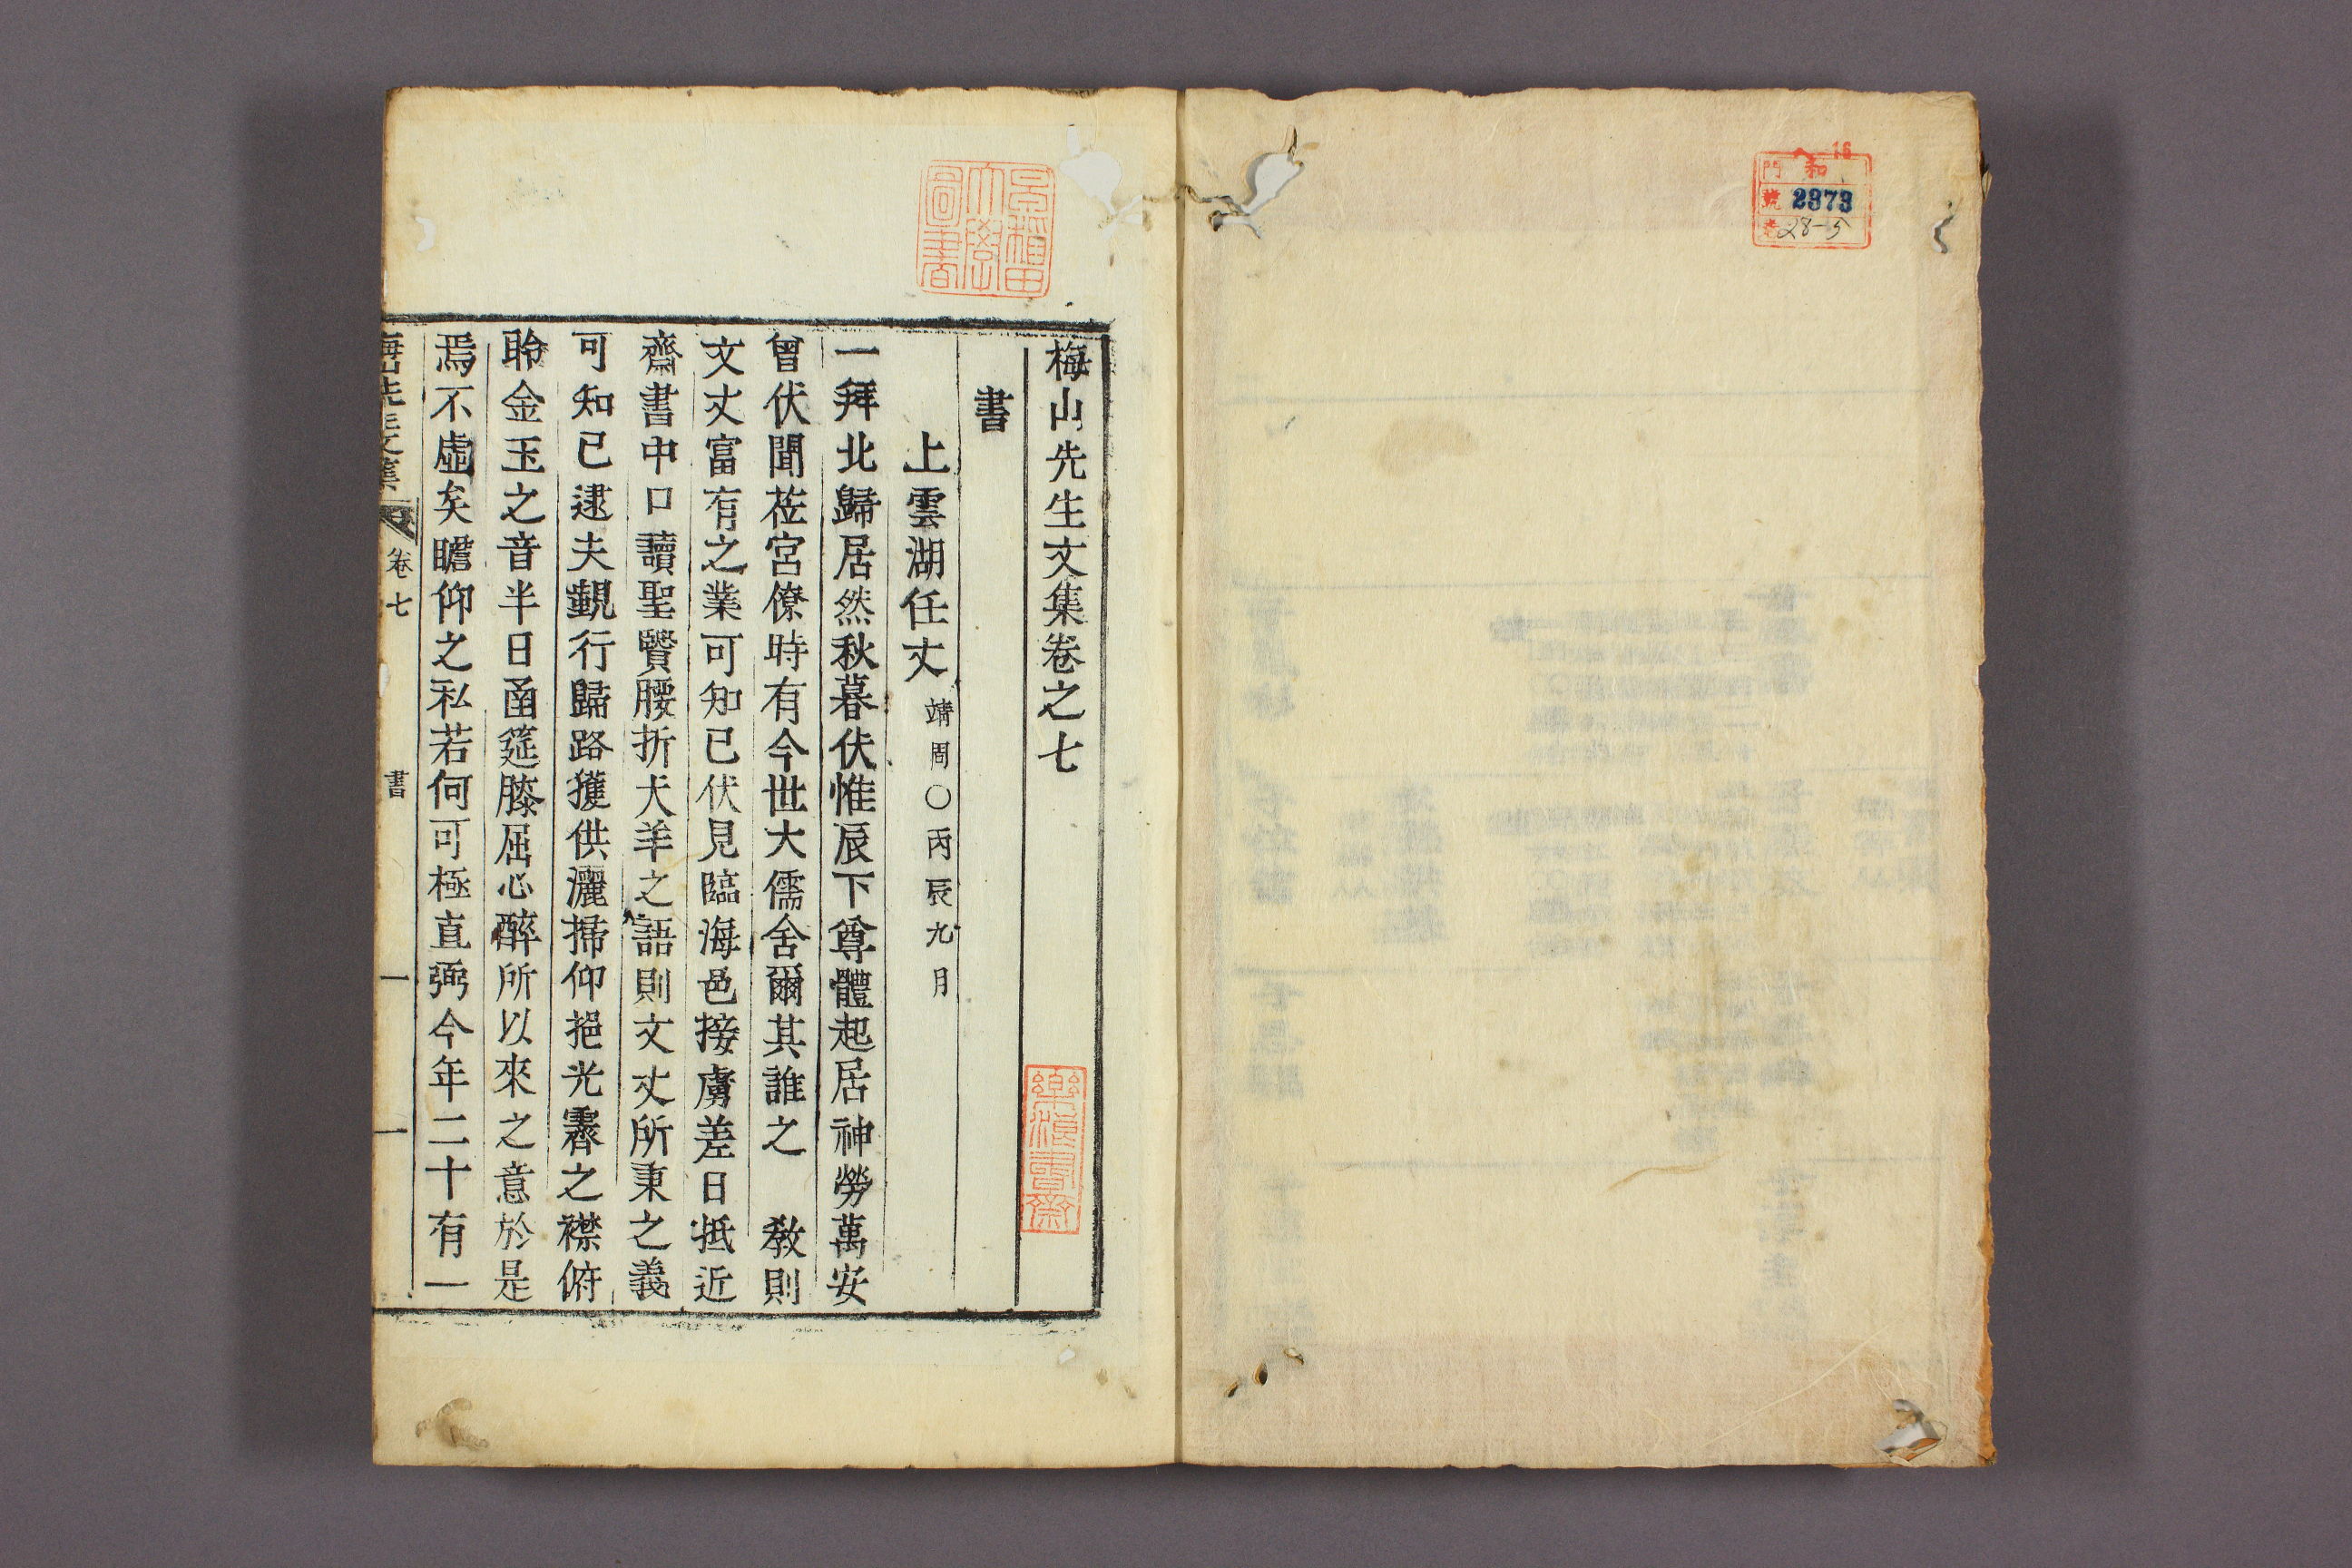 和
門
號 2373
卷 28-5
早稻田大學圖書
梅山先生文集卷之七
樂浪書齋
書
上雲湖任丈 靖周○丙辰九月
一拜北歸居然秋暮伏惟辰下尊體起居神勞萬安
曾伏聞莅宮僚時有今世大儒舍爾其誰之 教則
文丈富有之業可知已伏見臨海邑接虜差日抵近
齋書中口讀聖賢腰折犬羊之語則文丈所秉之義
可知已逮夫覲行歸路獲供灑掃仰挹光霽之襟俯
聆金玉之音半日函筵膝屈心醉所以來之意於是
焉不虛矣瞻仰之私若何可極直弼今年二十有一
梅山先生文集 卷七 書 一